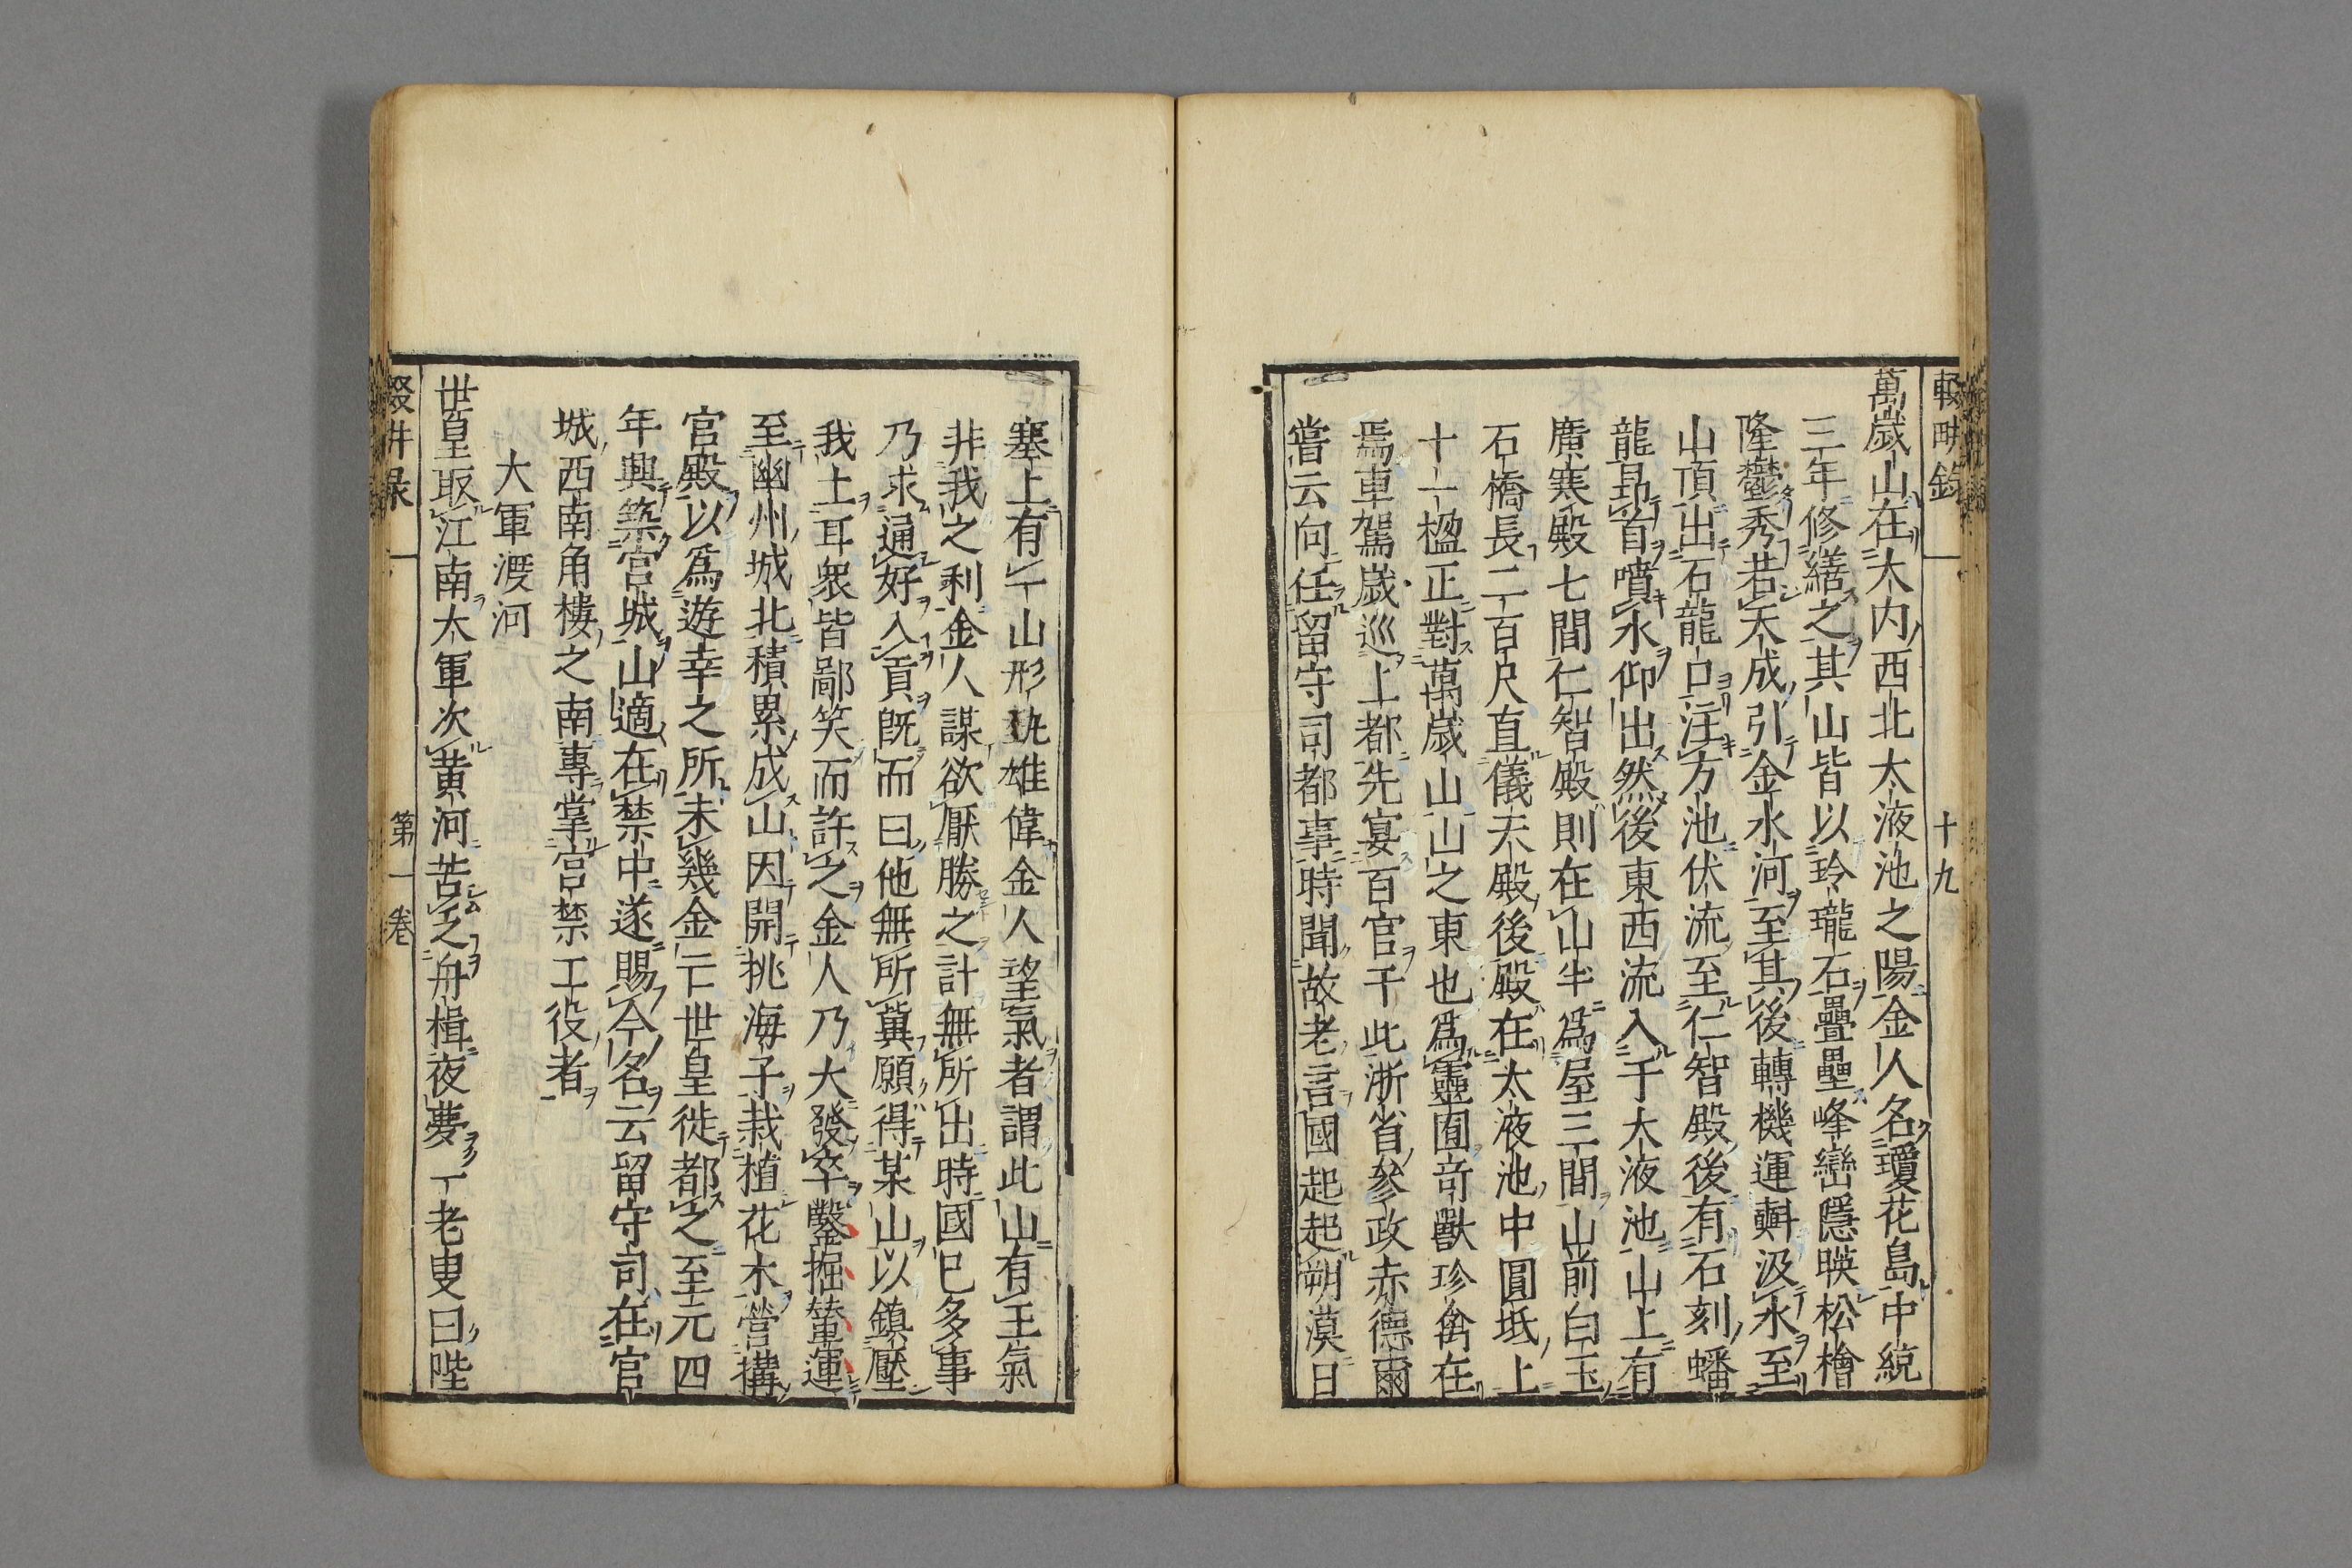 輟畊錄 十九
萬歲山在大内西北太液池之陽金人名瓊花島中統
三年修繕之其山皆以玲瓏石疊壘峰巒隱暎松檜
隆鬱秀若天成引金水河至其後轉機運㪺汲水至
山頂出石龍口注方池伏流至仁智殿後有石刻蟠
龍昂首噴水仰出然後東西流入于大液池山上有
廣寒殿七間仁智殿則在山半爲屋三間山前白玉
石橋長二百尺直儀天殿後殿在太液池中圓坻上
十一楹正對萬歲山山之東也爲靈囿奇獸珍禽在
焉車駕歲巡上都先宴百官于此浙省參政赤德爾
嘗云向任留守司都事時聞故老言國起起朔漠日
塞上有一山形勢雄偉金人望氣者謂此山有王氣
非我之利金人謀欲厭勝之計無所出時國已多事
乃求通好入貢既而曰他無所冀願得某山以鎮壓
我土耳衆皆鄙笑而許之金人乃大發卒鑿掘輦運
至幽州城北積累成山因開挑海子栽植花木營構
官殿以爲遊幸之所未幾金亡世皇徙都之至元四
年興築宮城山適在禁中遂賜今名云留守司在官
城西南角樓之南專掌宮禁工役者
大軍渡河
世皇取江南大軍次黄河苦乏舟楫夜夢一老叟曰陛
輟畊录 第一卷